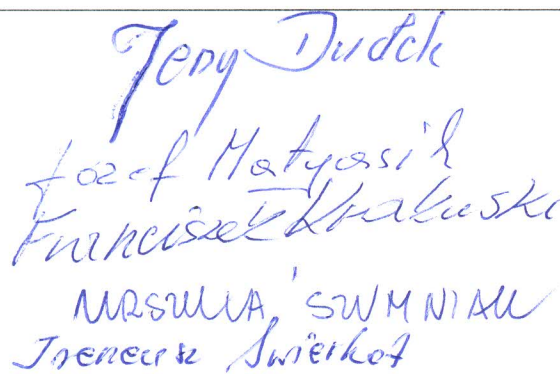 Jerzy Dudek
Józef Matyasik
Franciszek Krakuski
URSZULA SZYMNIAK
Ireneusz Świerkot